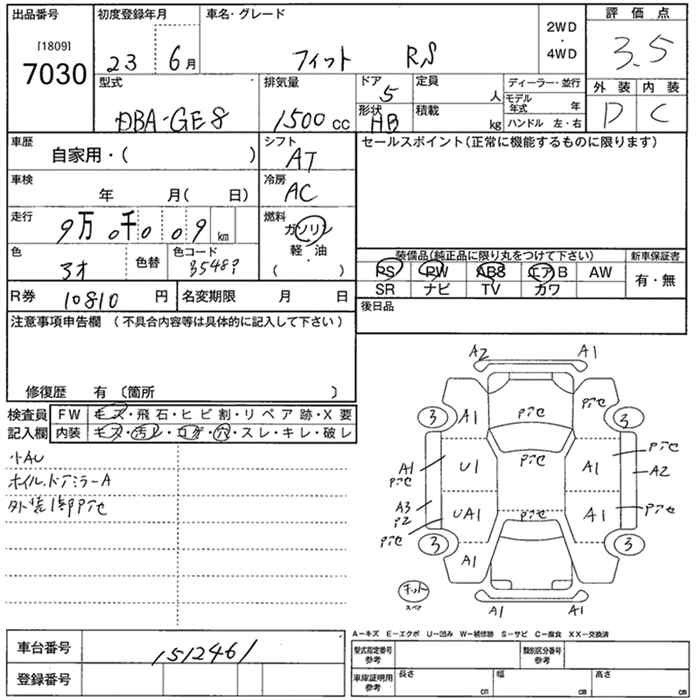 出品番号 初度登録年月 車名・グレード 評価点
[1809] 7030 23 6月 フィット RS 2WD・4WD 3.5
型式 排気量 ドア 5 定員 人 ディーラー・並行 外装 内装
DBA-GE8 1500cc 形状 HB 積載 kg モデル年式 年 D C
ハンドル 左・右
車歴 自家用・( ) シフト AT セールスポイント(正常に機能するものに限ります)
車検 年 月( 日) 冷房 AC
走行 9万0千009km 燃料 ガソリン
軽・油
( ・ )
色 色替 色コード
装備品(純正品に限り丸をつけて下さい) 新車保証書
PS PW ABS エアB AW 有・無
SR ナビ TV カワ
R券 10810円 名変期限 月 日 後日品
注意事項申告欄 (不具合内容等は具体的に記入して下さい)
修復歴 有 〔箇所 〕
検査員 FW キズ・飛石・ヒビ割・リペア跡・X要
記入欄 内装 キズ・汚レ・コゲ・穴・スレ・キレ・破レ
小AU
ホイル、ドアミラーA
外装1部Pテセ
A2 A1
3 A1 Pテセ Pテセ 3
A1 Pテセ U1 Pテセ A1 Pテセ A2
A3 P2 Pテセ UA1 Pテセ A1 Pテセ
3 A1 3
キット スペア A1 A1
A-キズ E-エクボ U-凹み W-補修跡 S-サビ C-腐食 XX-交換済
車台番号 1512461 型式指定番号 参考 類別区分番号 参考
登録番号 車庫証明用 参考 長さ cm 幅 cm 高さ cm